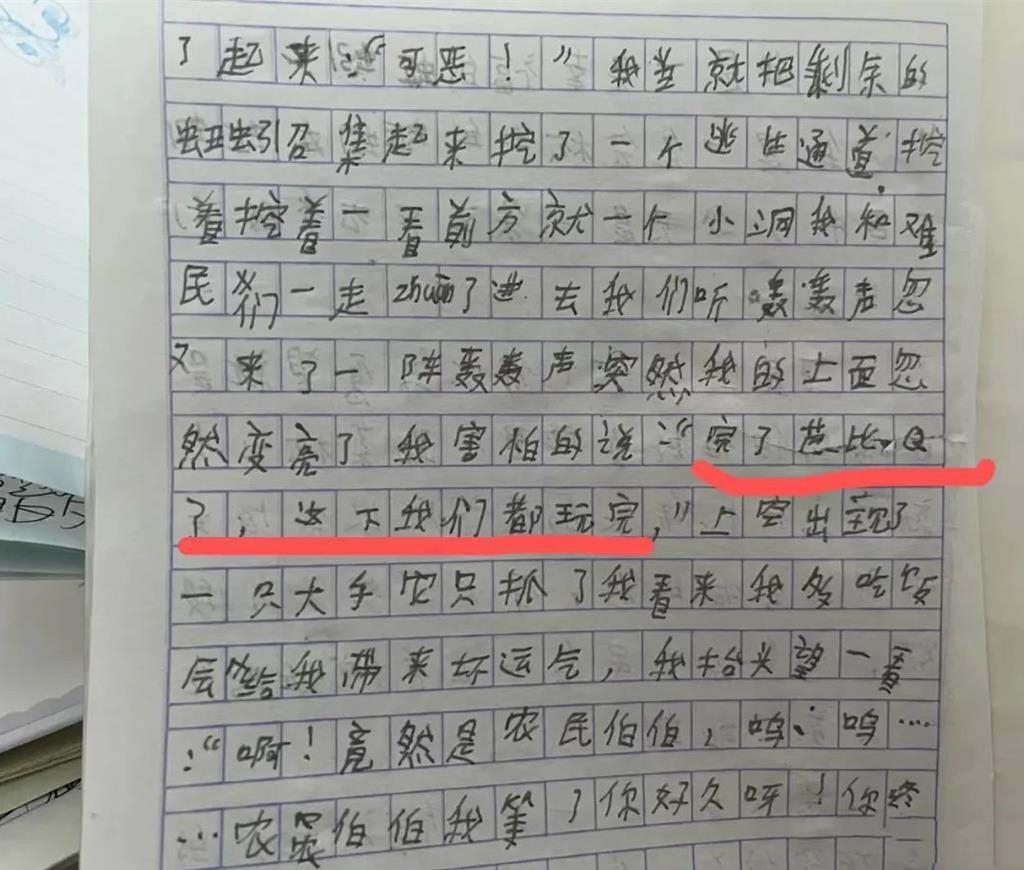 了起来:“可恶!”我当就把剩余的
蚯蚓召集起来挖了一个逃生通道.挖
着挖着一看前方就一个小洞我和难
民们一走zhuan了进去我们听轰轰声忽
又来了一阵轰轰声突然我的上面忽
然变亮了我害怕的说:“完了芭比Q
了,这下我们都玩完,”上空出现了
一只大手它只抓了我看来我多吃饭
会给我带来坏运气,我抬头望一看
:“啊!竟然是农民伯伯,呜、呜…
…农民伯伯我等了你好久呀!你终